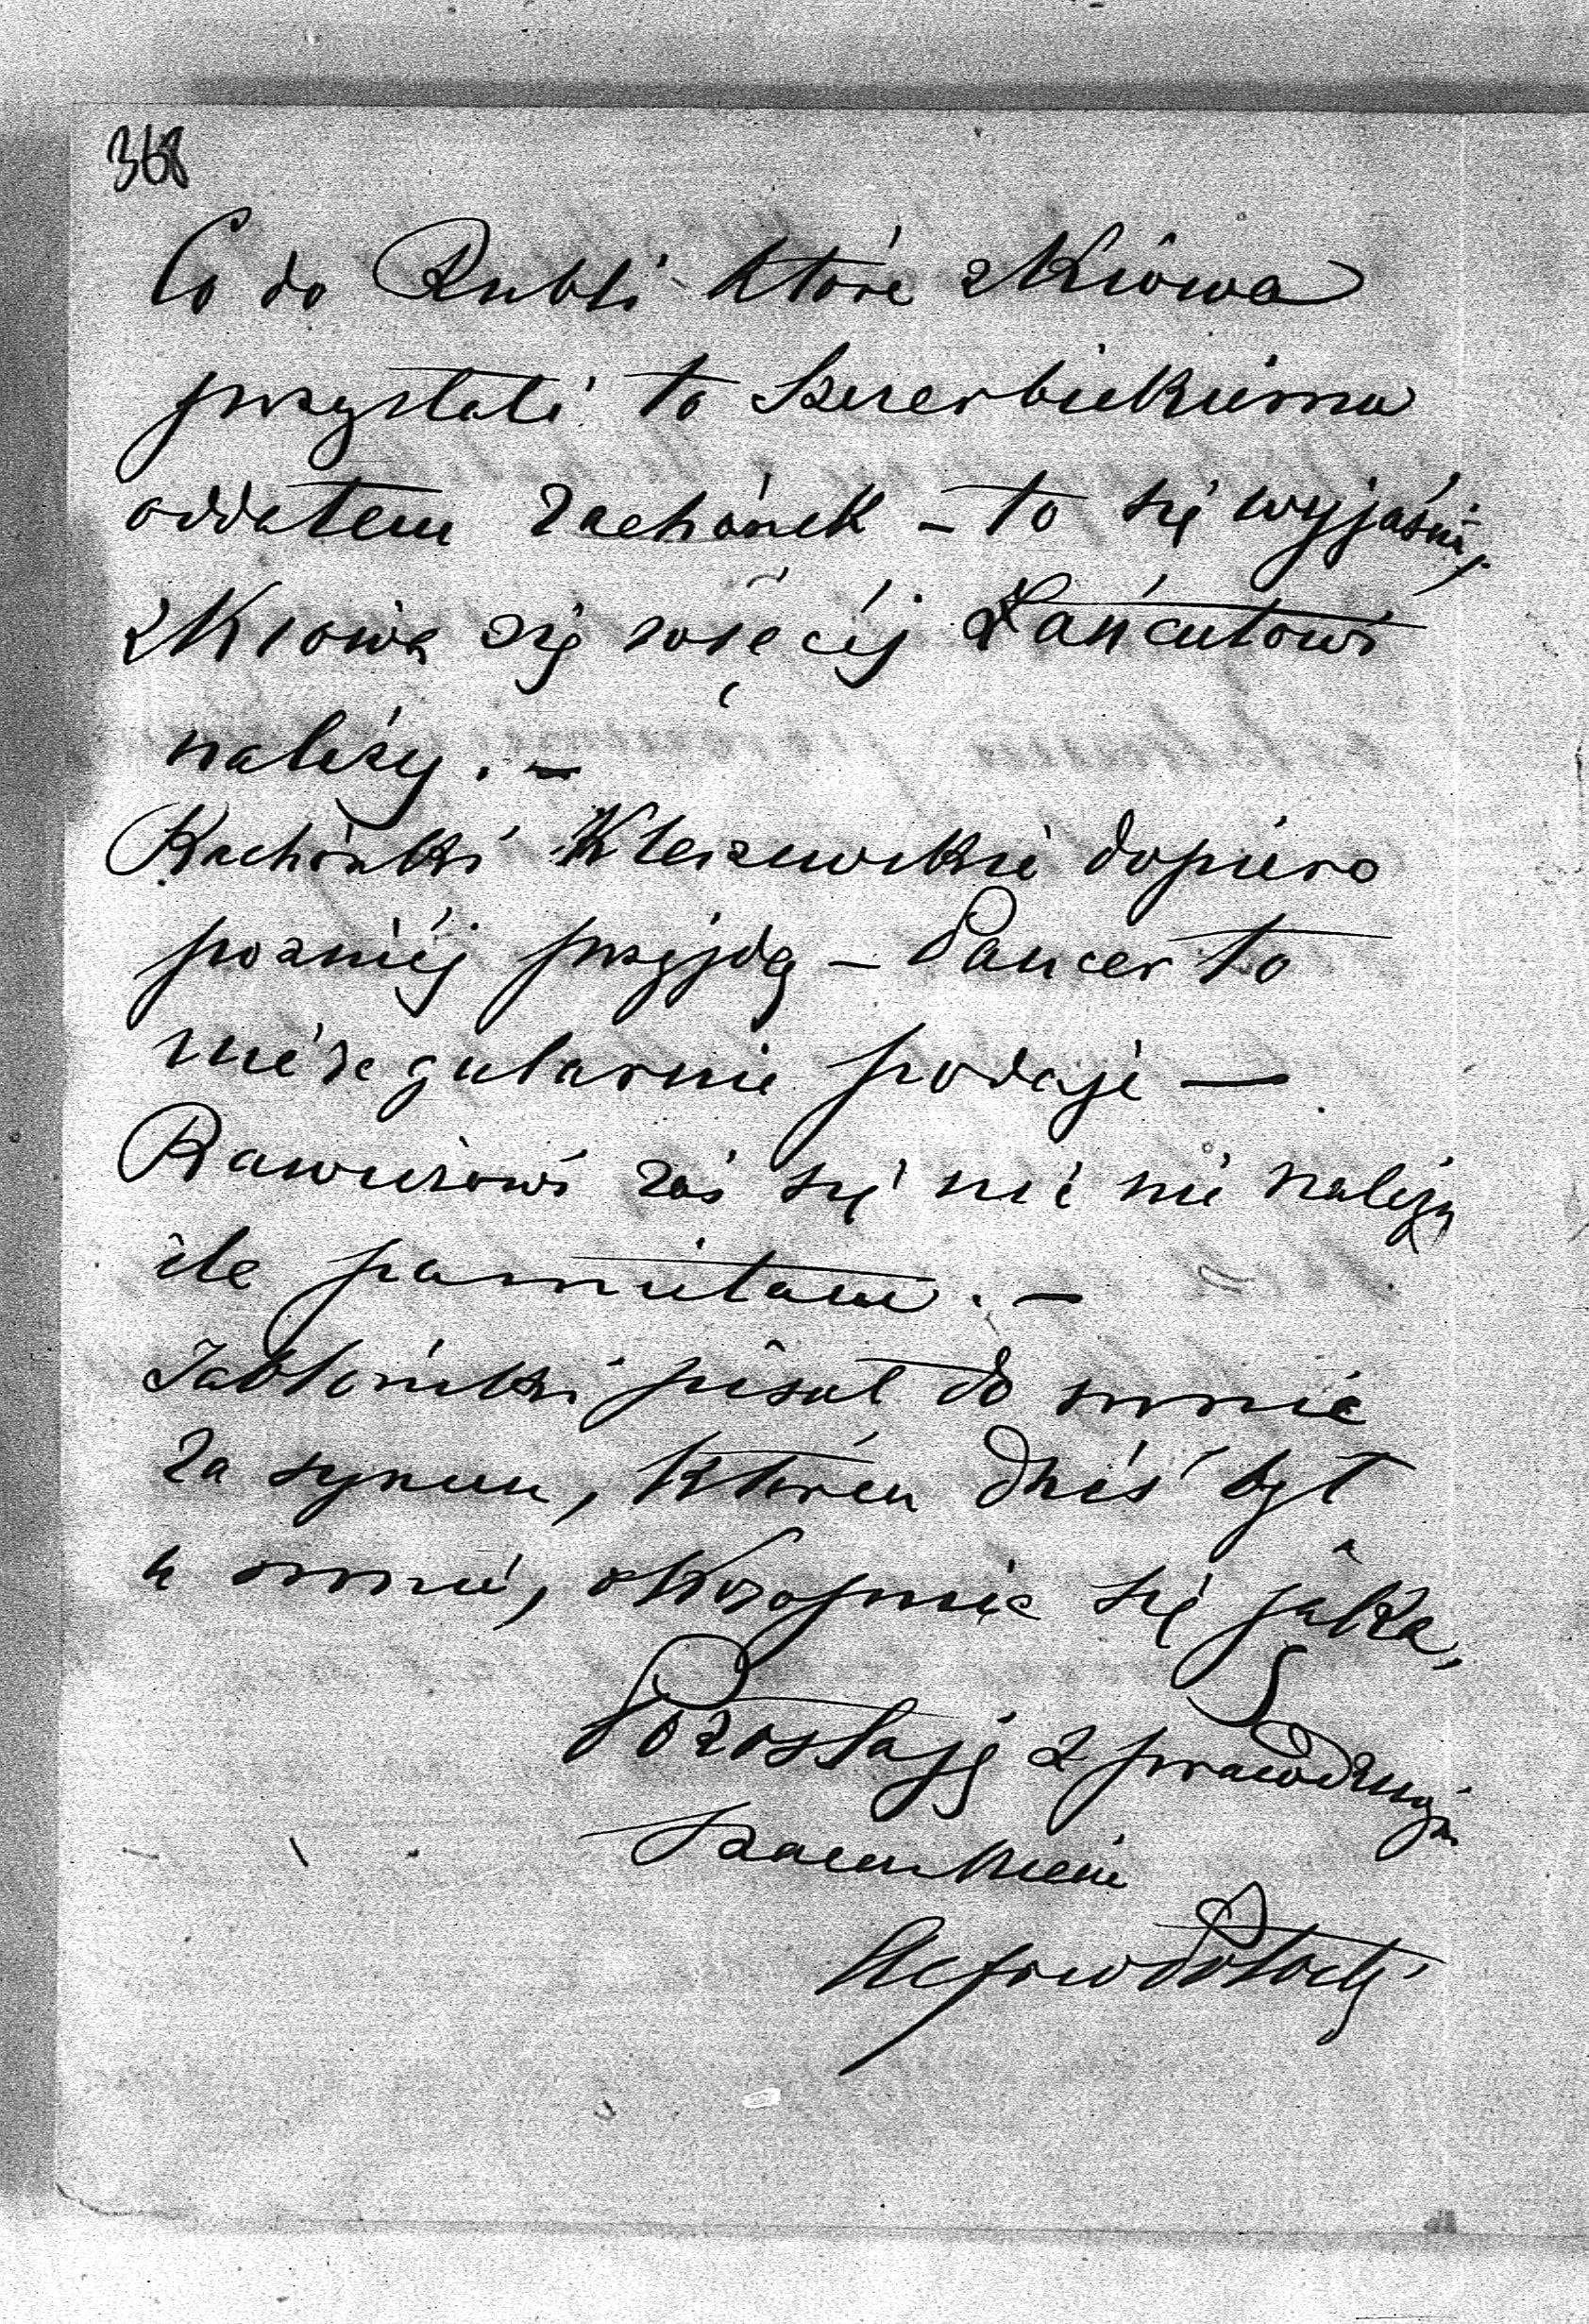 368
Co do Rubli które z Kiowa
przysłali to Szczerbickiemu
oddałem rachónek – to się wyjaśni,
z Kiowa się więcéj Łańcutowi
należy. –
Rachónki Kleszczewskie dopiero
pozniéj przyjdą – Pancer to
nieregularnie podaje —
Rawiczowi zaś się nic nie należy
ile pamiętam. –
Jabłoński pisał do mnie
za synem, któren dziś był
u mnie, okropnie się jąka,
Pozostaję z prawdziwym
szacunkiem
Alfred Potocki